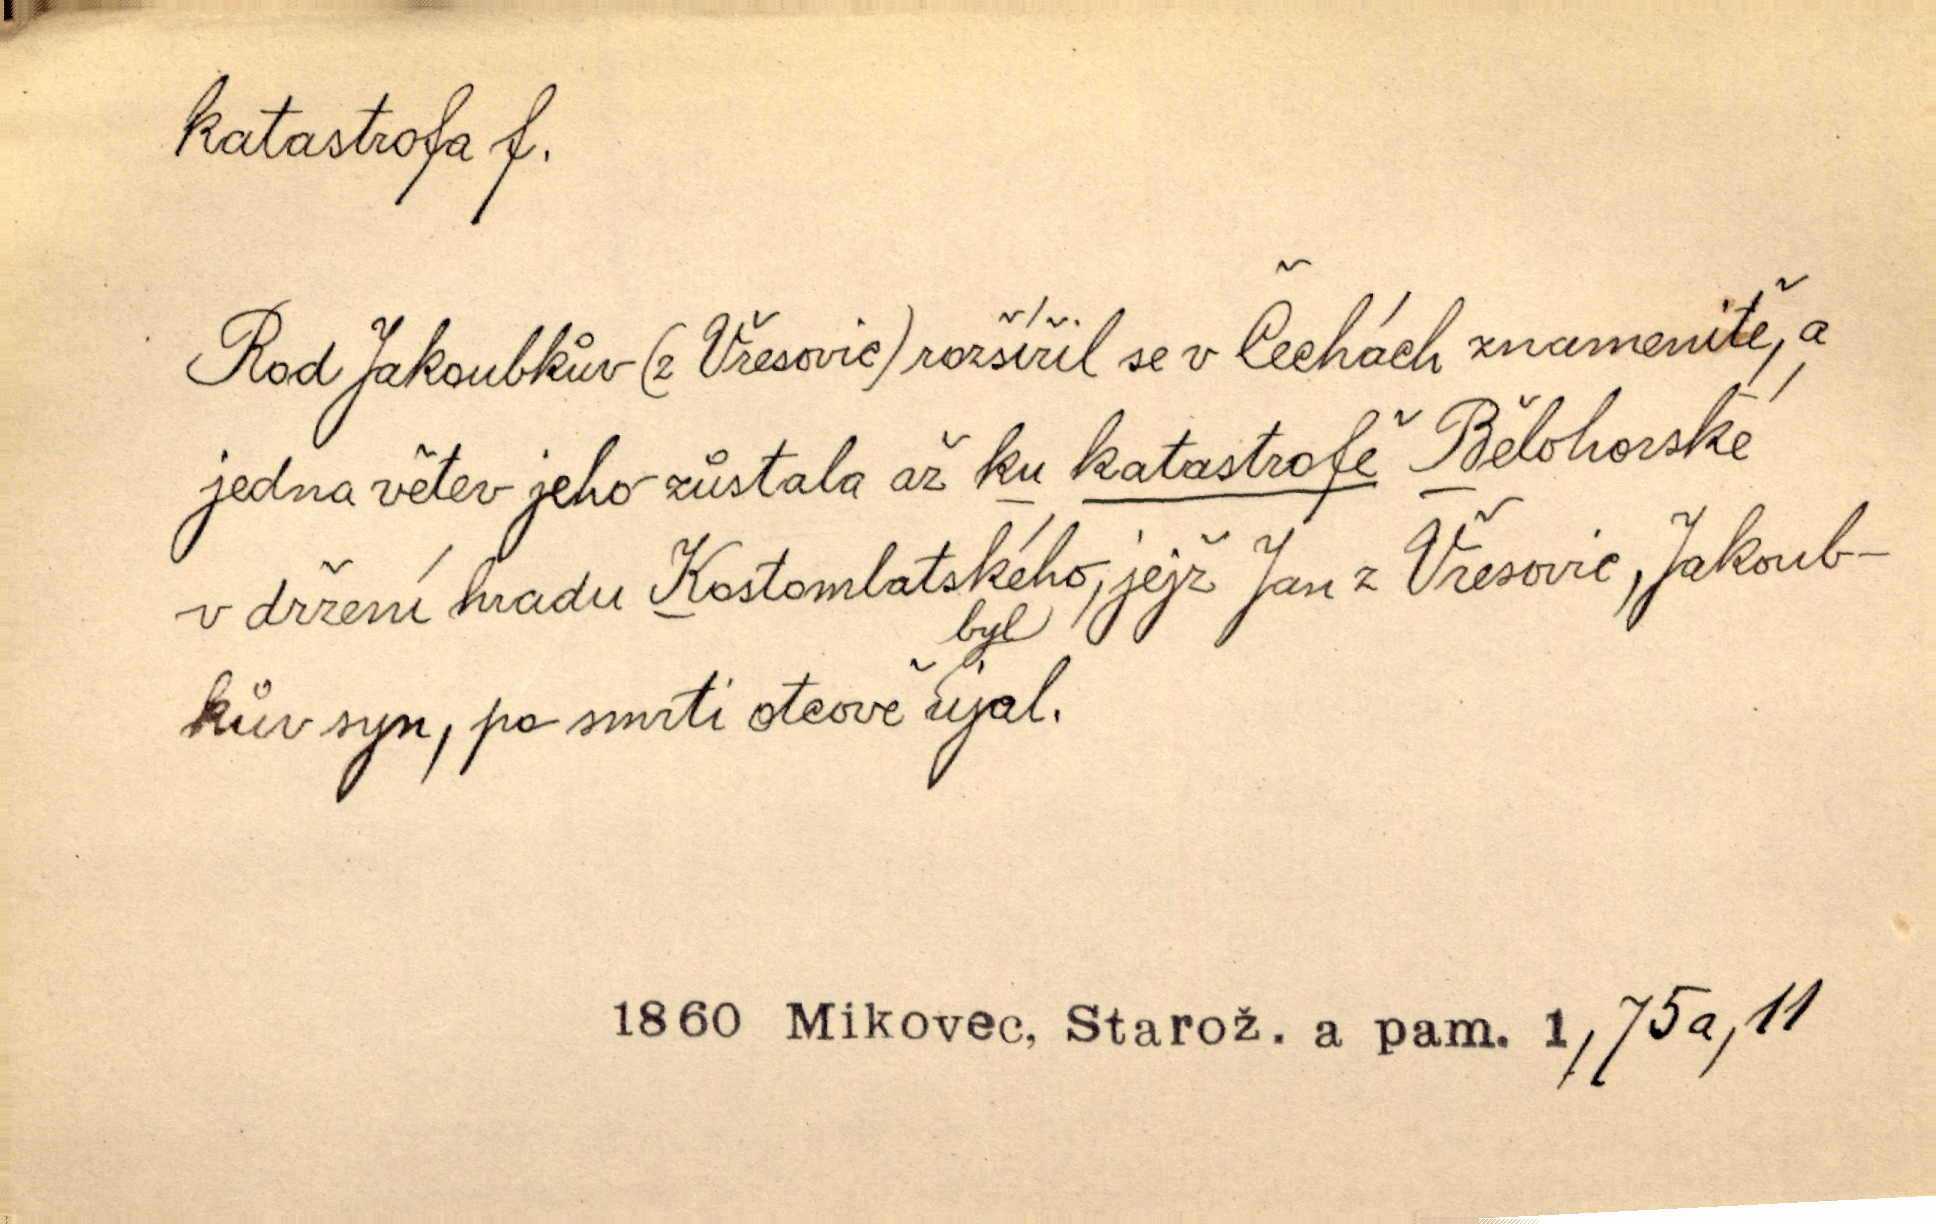 katastrofa f.
Rod Jakoubkův (z Vřesovic) rozšířil se v Čechách znamenitě, a
jedna větev jeho zůstala až ku katastrofě Bělohorské
v držení hradu Kostomlatského, jejž Jan z Vřesovic, Jakoub-
kův syn, po smrti otcově byl ujal.
1860 Mikovec, Starož. a pam. 1, 75a, 11